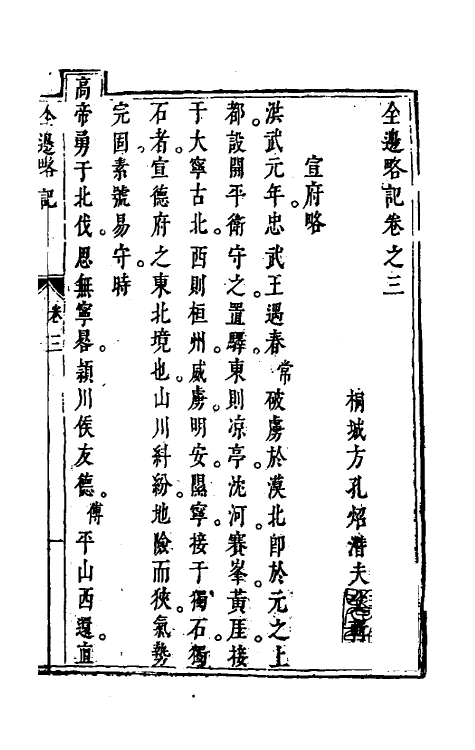 全邊略記卷之三
桐城方孔炤潛夫
宣府略
洪武元年忠武王遇春常破虜於漠北卽於元之上
都設開平衛守之置驛東則凉亭沈河賽峯黃厓接
于大寧古北西則桓州威虜明安隰寧接于獨石獨
石者宣德府之東北境也山川糾紛地險而狹氣勢
完固素號易守時
高帝勇于北伐思無寧晷潁川侯友德傅平山西還直
全邊略記
卷三